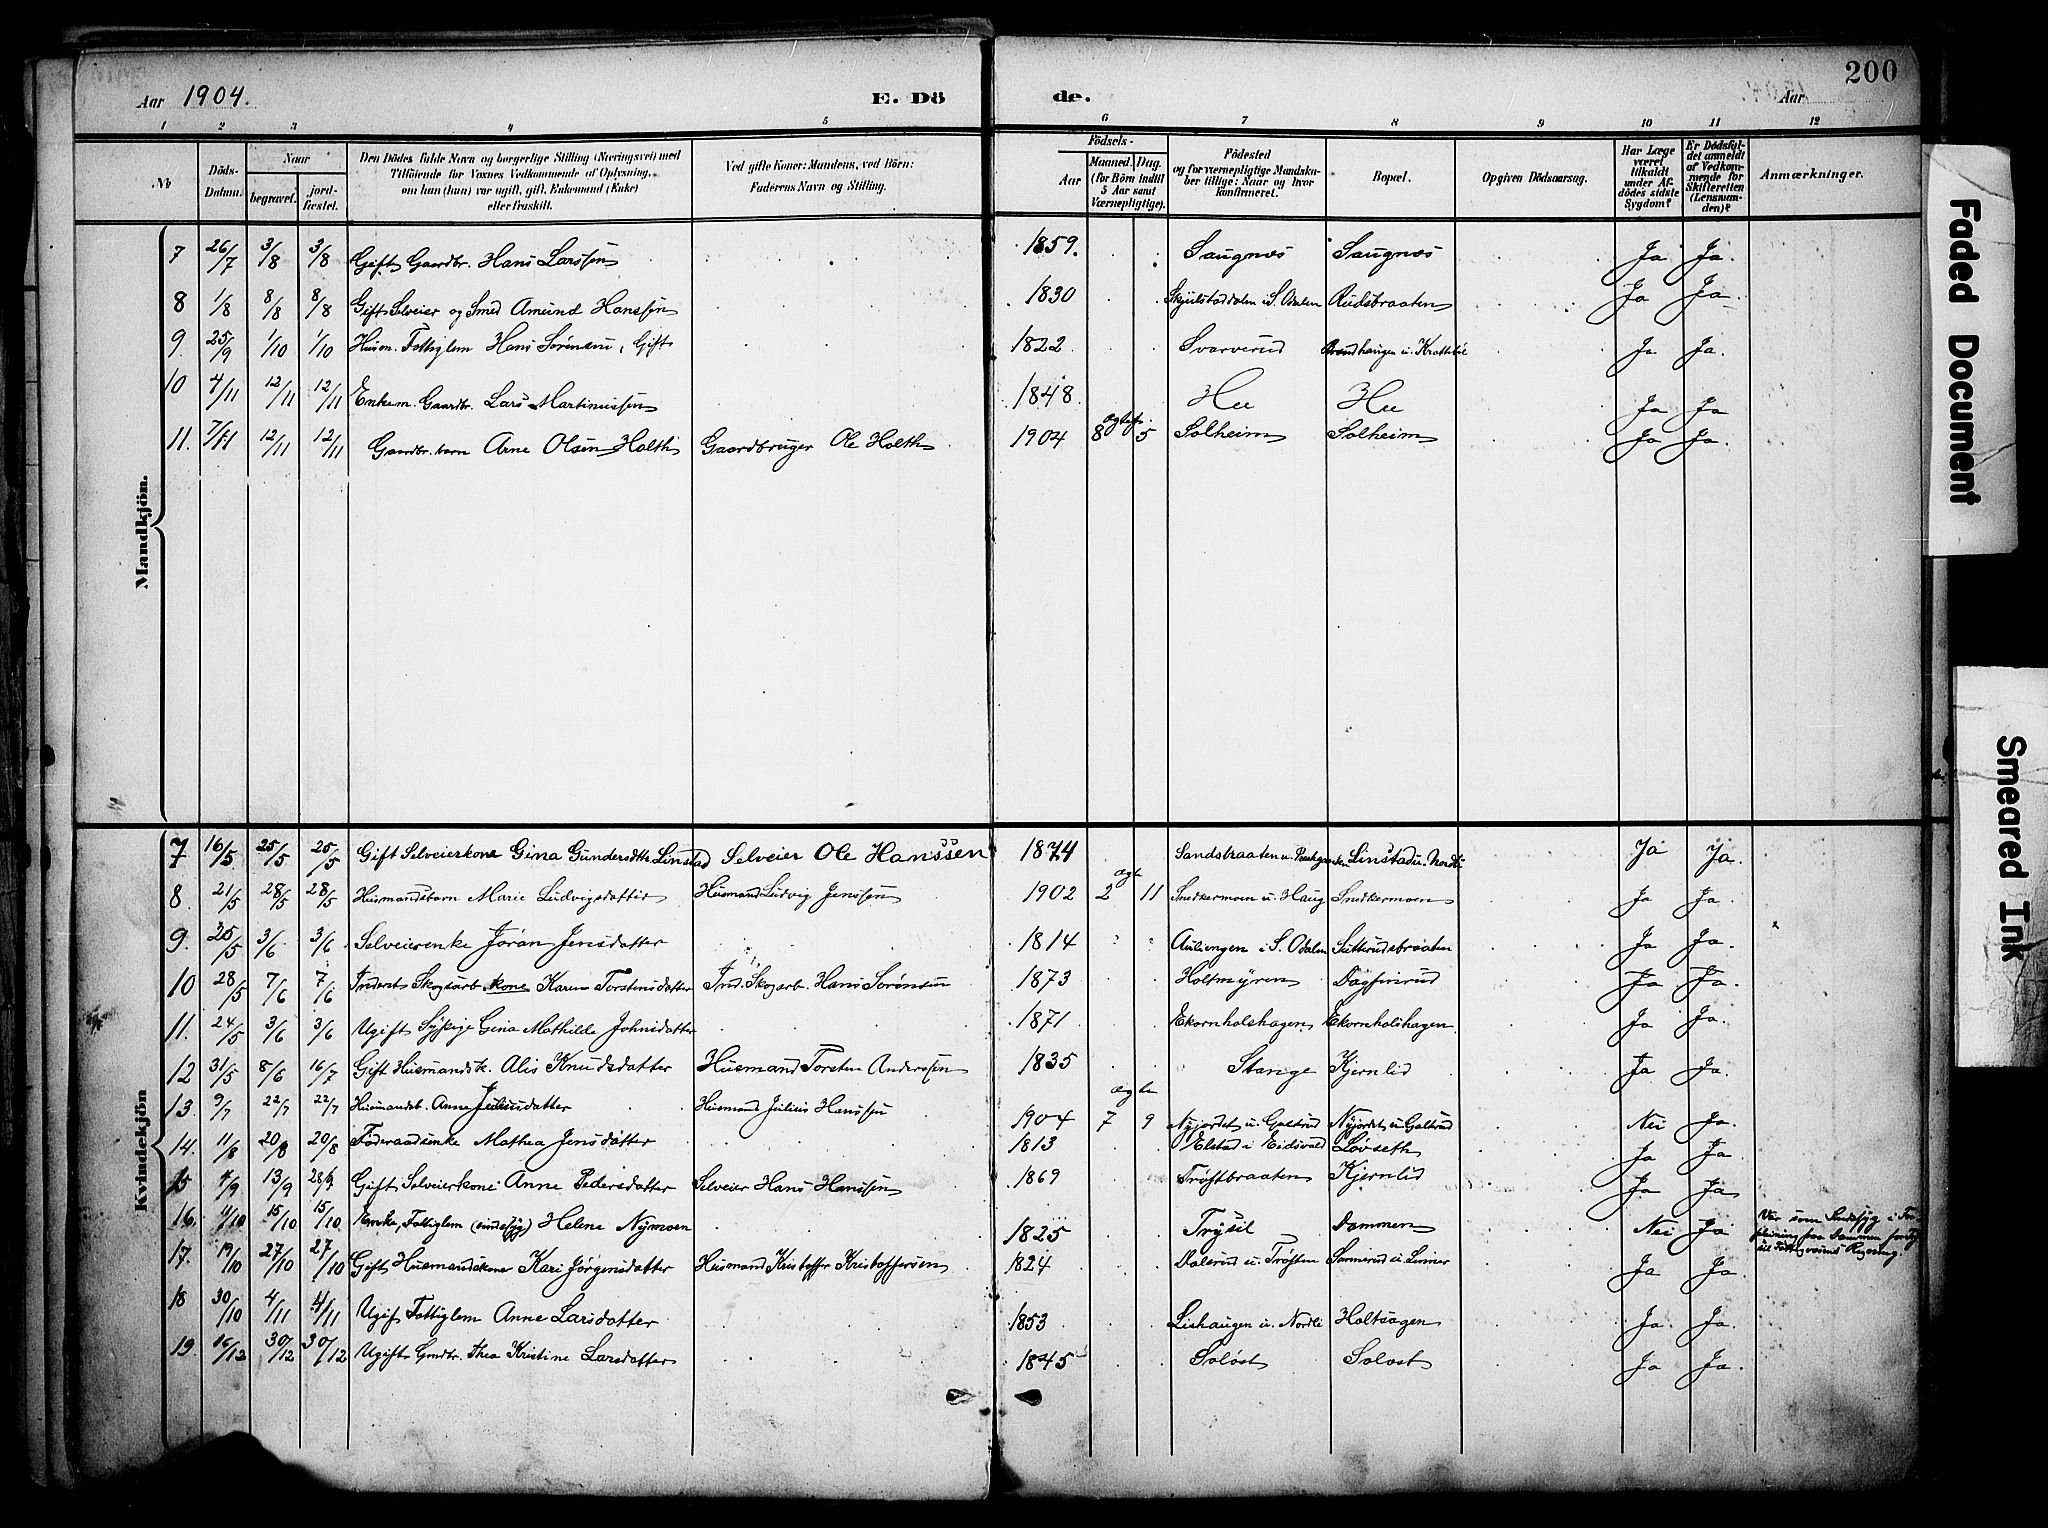 200
Aar 1904. E. Dö de. Aar
1 2 3 4 5 6 7 8 9 10 11 12
No
Döds-Datum.
Naar begravet. jordfæstet.
Den Dödes fulde Navn og borgerlige Stilling (Næringsvei) med Tilföiende for Voxnes Vedkommende af Oplysning, om han (hun) var ugift, gift, Enkemand (Enke) eller fraskilt.
Ved gifte Koner: Mandens, ved Börn: Faderens Navn og Stilling.
Födsels-
Aar Maaned. Dag. (for Börn indtil 5 Aar samt Værnepligtige).
Födested og for værnepligtige Mandskaber tillige: Naar og hvor konfirmeret.
Bopæl.
Opgiven Dödsaarsag.
Har Læge været tilkaldt under Afdödes sidste Sygdom?
Er Dödsfaldet anmeldt af Vedkommende for Skifteretten (Lensmanden)?
Anmærkninger.
Mandkjön.
7 26/7 3/8 3/8 Gift Gaardbr. Hans Larssøn 1859. Saugnæs Saugnæs Ja Ja.
8 1/8 8/8 8/8 Gift Selveier og Smed Amund Hanssøn 1830 Skjulstaddalen i S. Odalen Rudsbraaten Ja Ja.
9. 25/9 1/10 1/10 Husm. Fattiglem Hans Sørensen, Gift 1822 Svarverud Ja Ja.
10 4/11 12/11 12/11 Enkem. Gaardbr. Lars Martinussøn 1848 Hu Hu Ja Ja
11. 7/11 12/11 12/11 Gaardbr. barn Arne Olsen Holth Gaardbruger Ole Holth 1904 8 5 Solheim Solheim Ja Ja.
Kvindekjön
7 16/5 25/5 25/5 Gift Selveierkone Gina Gundersdtr. Linstad Selveier Ole Hanssen 1874 Sandsbraaten u. Linstad u. Nordli Ja Ja.
8 21/5 28/5 28/5 Husmandsbarn Marie Ludvigsdatter Husmand Ludvig Jenssøn 1902 ægte 2 11 Snedkermoen u. Haug Snedkermoen Ja Ja.
9. 25/5 3/6 3/6 Selveierenke Jøran Jensdatter 1814 Auliengen i S. Odalen Sutterudsbraaten Ja Ja.
10 28/5 7/6 7/6 Inderst Skogsarb. kone Karen Torstensdatter Ind. Skogarb. Hans Sørensen 1873 Holtmyren Dagfinrud Ja Ja.
11. 24/5 3/6 3/6 Ugift Sypige Gina Mathilde Johnsdatter 1871 Ekornholshagen Ekornholshagen Ja Ja.
12 31/5 8/6 16/7 Gift Husmandsk. Alis Knudsdatter Husmand Torsten Anderssøn 1835 Stange Kjernlid Ja Ja.
13. 9/7 22/7 22/7 Husmandsb. Anne Juliusdatter Husmand Julius Hanssøn 1904 ægte 7 9 Nyjordet u. Galtrud Nyjordet u. Galtrud Nei Ja.
14. 11/8 20/8 20/8 Føderaadsenke Mathea Jensdatter 1813 Elstad i Eidsvold Løvseth Ja Ja.
15 4/9 13/9 28/9 Gift Selveierkone Anne Pedersdatter Selveier Hans Hanssøn 1869 Trøftbraaten Kjernlid Ja Ja
16. 4/10 15/10 15/10 Enke, Fattiglem (sindssyg) Helene Nymoen 1825 Trysil Dammen Nei Ja Var som Sindssyg i Forpleining paa Dammen
17. 19/10 27/10 27/10 Gift Husmandskone Kari Jørgensdatter Husmand Kristoffer Kristoffersen 1824 Dalsrud u. Trøften Sannerud u. Ja Ja.
18 30/10 4/11 4/11 Ugift Fattiglem Anne Larsdatter 1853 Lishaugen u. Nordli Holtsagen Ja Ja.
19. 16/12 30/12 30/12 Ugift Gmdbr. Thea Kristine Larsdatter 1845 Soløst Soløst Ja Ja.
Faded Document
Smeared Ink